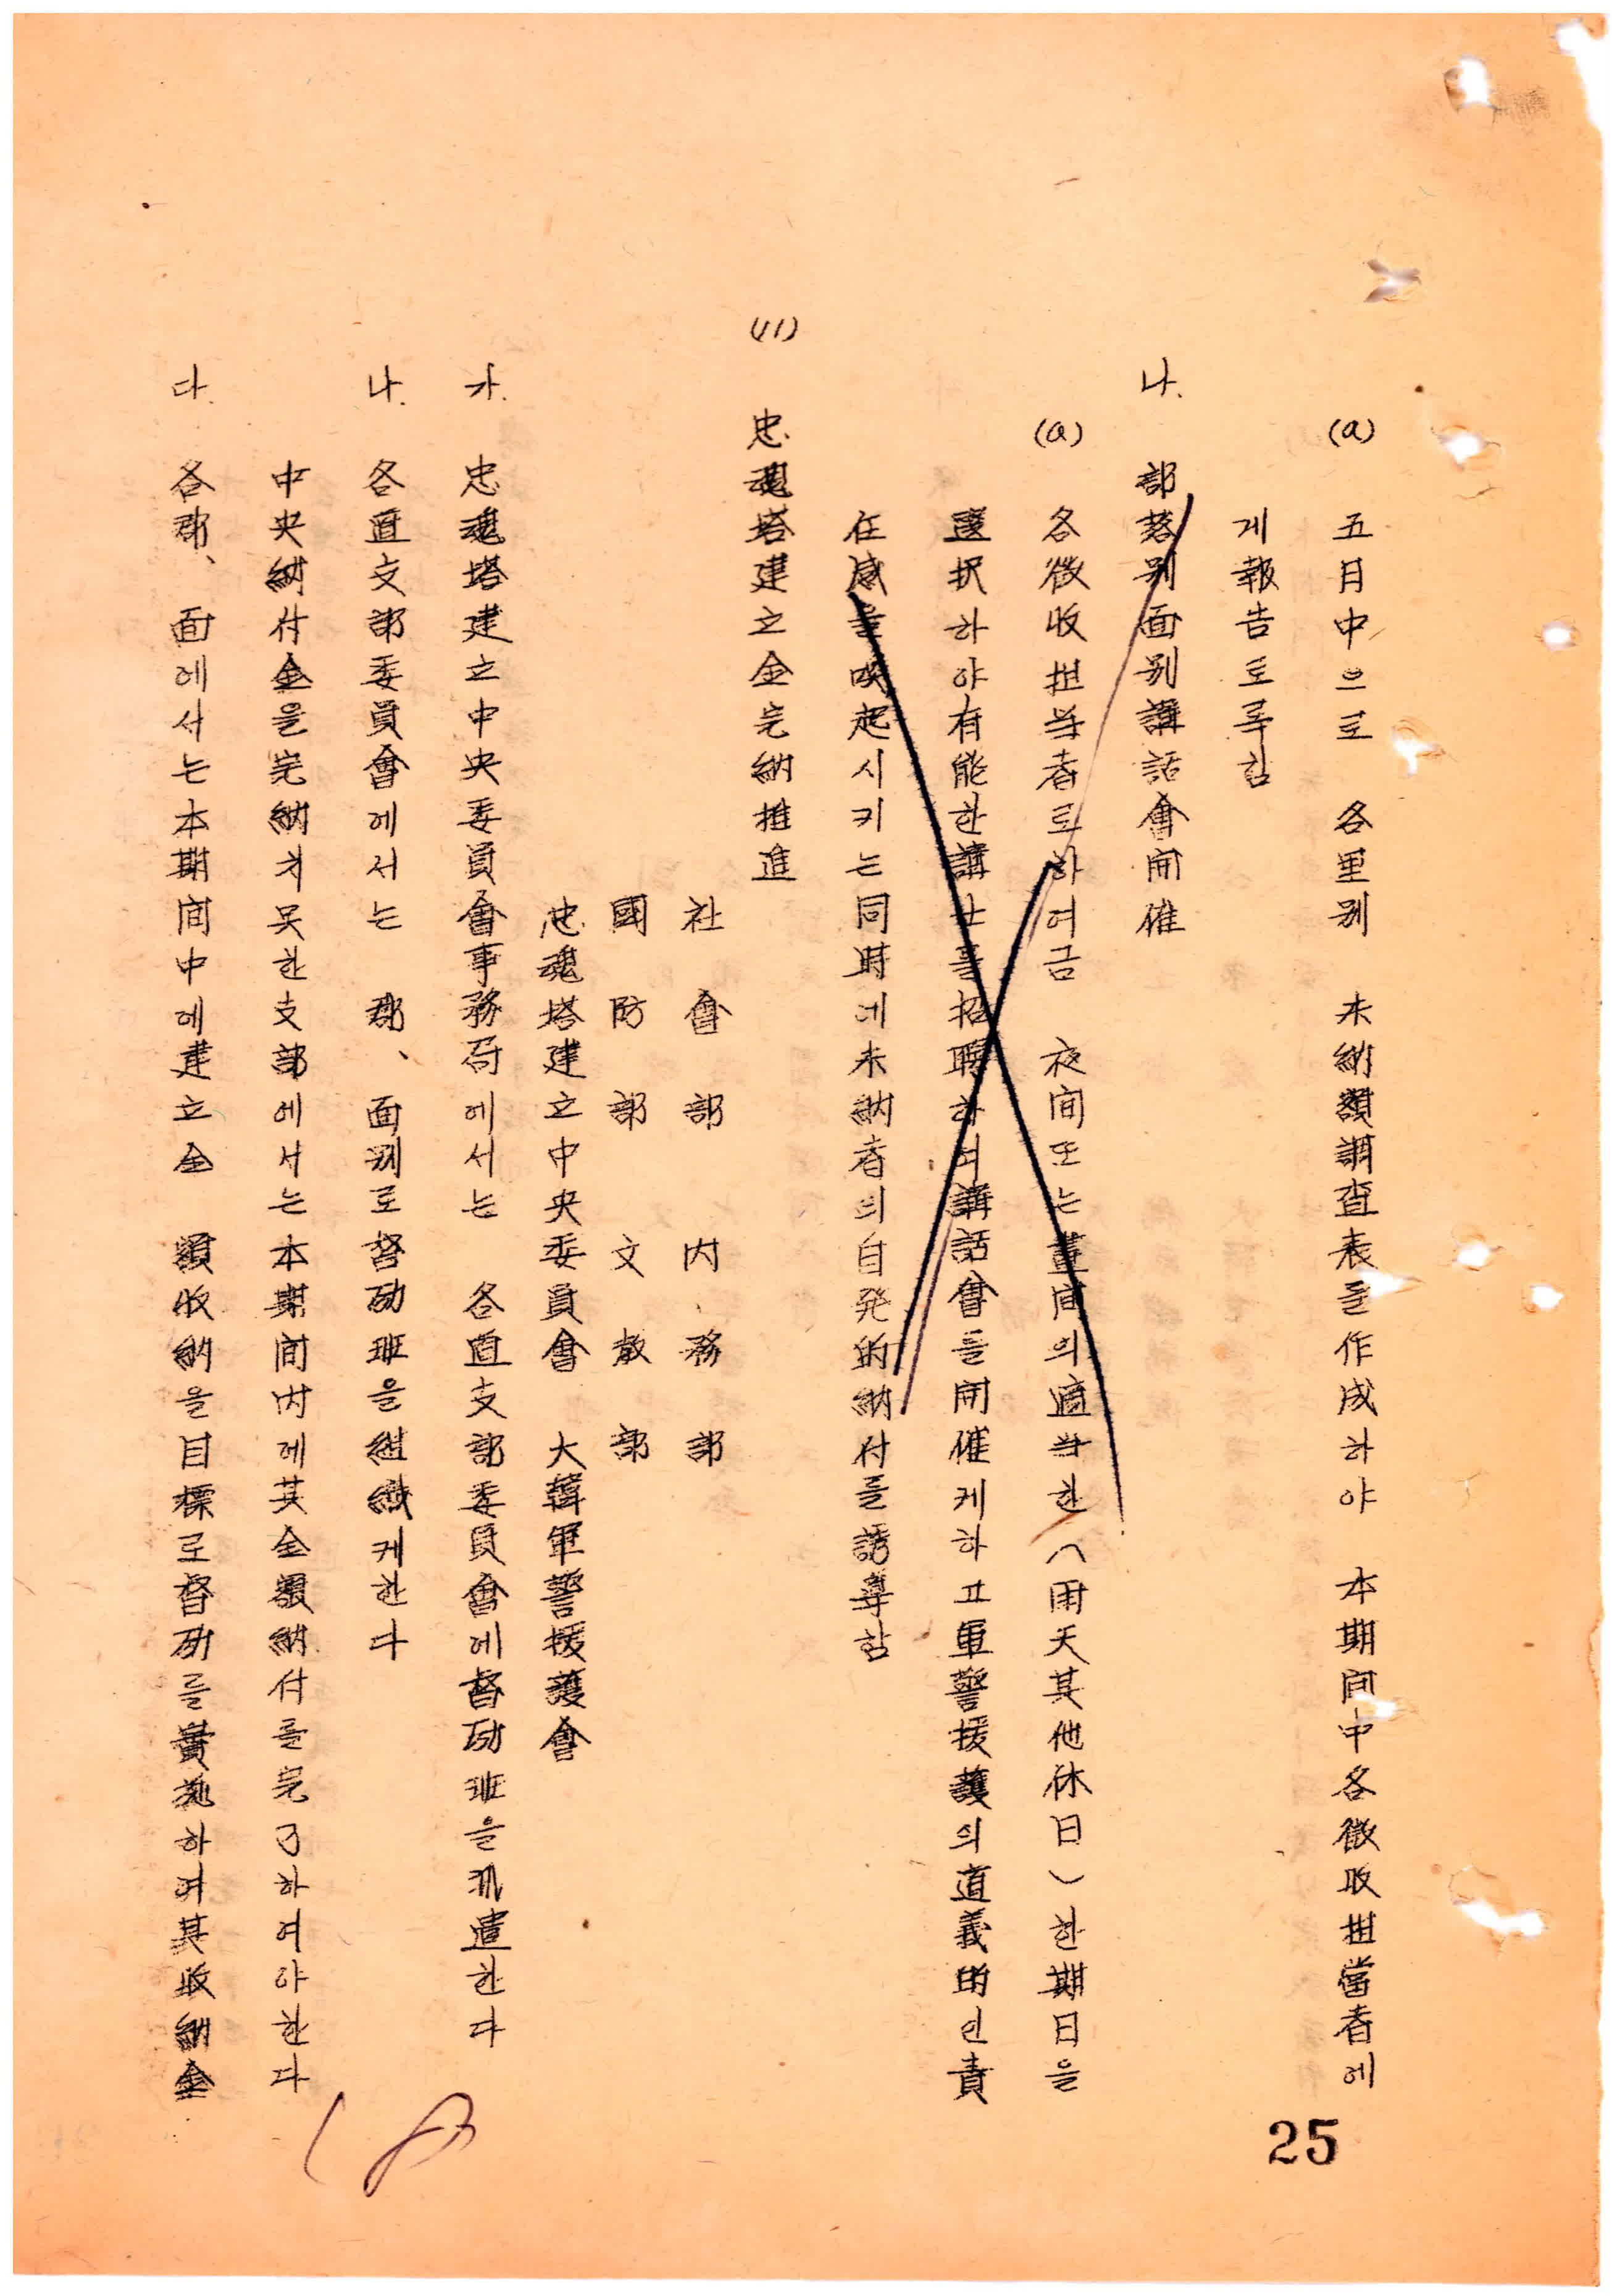 (a) 五月中으로 各里別 未納額調査表를作成하야 本期間中各徵收担當者에
게報告토록함
나. 部落別面別講話會開催
(a) 各徵收担当者로하여금 夜間또는晝間의適当한(雨天其他休日)한期日을
選択하야有能한講士를招聘하여講話會를開催케하고軍警援護의道義的인責
任感을喚起시키는同時에未納者의自発的納付를誘導함
(11) 忠魂塔建立金完納推進
社會部 內務部
國防部 文敎部
忠魂塔建立中央委員會 大韓軍警援護會
가. 忠魂塔建立中央委員會事務局에서는 各道支部委員會에督励班을派遣한다
나. 各道支部委員會에서는 郡、面別로督励班을組織케한다
中央納付金을完納치못한支部에서는本期間內에其金額納付를完了하여야한다
다. 各郡、面에서는本期間中에建立金 額收納을目標로督励를實施하여其收納金
25